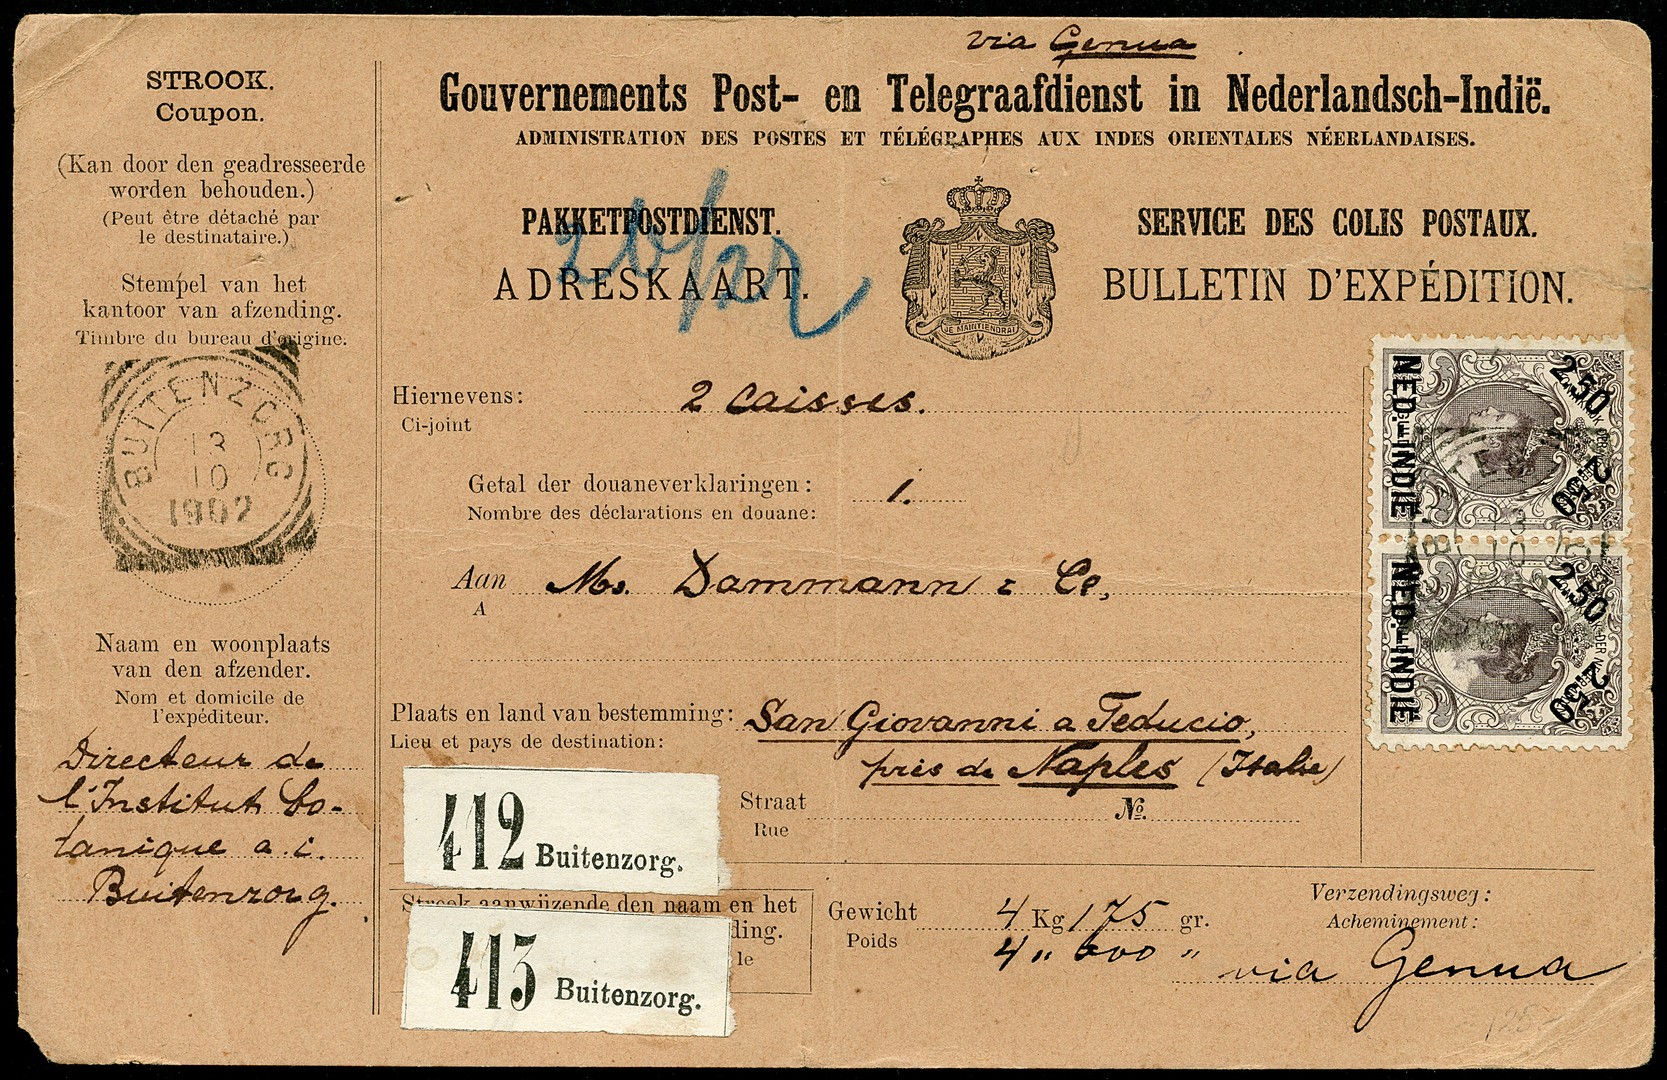 via Genua
Gouvernements Post- en Telegraafdienst in Nederlandsch-Indië.
ADMINISTRATION DES POSTES ET TÉLÉGRAPHES AUX INDES ORIENTALES NÉERLANDAISES.
STROOK.
Coupon.
(Kan door den geadresseerde
worden behouden.)
(Peut être détaché par
le destinataire.)
Stempel van het
kantoor van afzending.
Timbre du bureau d'origine.
BUITENZORG
13
10
1902
Naam en woonplaats
van den afzender.
Nom et domicile de
l'expéditeur.
Directeur de
l'Institut bo-
tanique a. i.
Buitenzorg.
PAKKETPOSTDIENST.
ADRESKAART.
JE MAINTIENDRAI
SERVICE DES COLIS POSTAUX.
BULLETIN D'EXPÉDITION.
Hiernevens: 2 caisses.
Ci-joint
Getal der douaneverklaringen: 1.
Nombre des déclarations en douane:
Aan Ms. Dammann & Co,
A
Plaats en land van bestemming: San Giovanni a Teducio,
Lieu et pays de destination: près de Naples (Italie)
Straat No.
Rue
412 Buitenzorg.
Strook aanwijzende den naam en het
ding.
le
413 Buitenzorg.
Gewicht 4 Kg 175 gr.
Poids 4 " 000 "
Verzendingsweg:
Acheminement:
via Genua
NED.-INDIË
2.50
2.50
13
10
NED.-INDIË
2.50
2.50